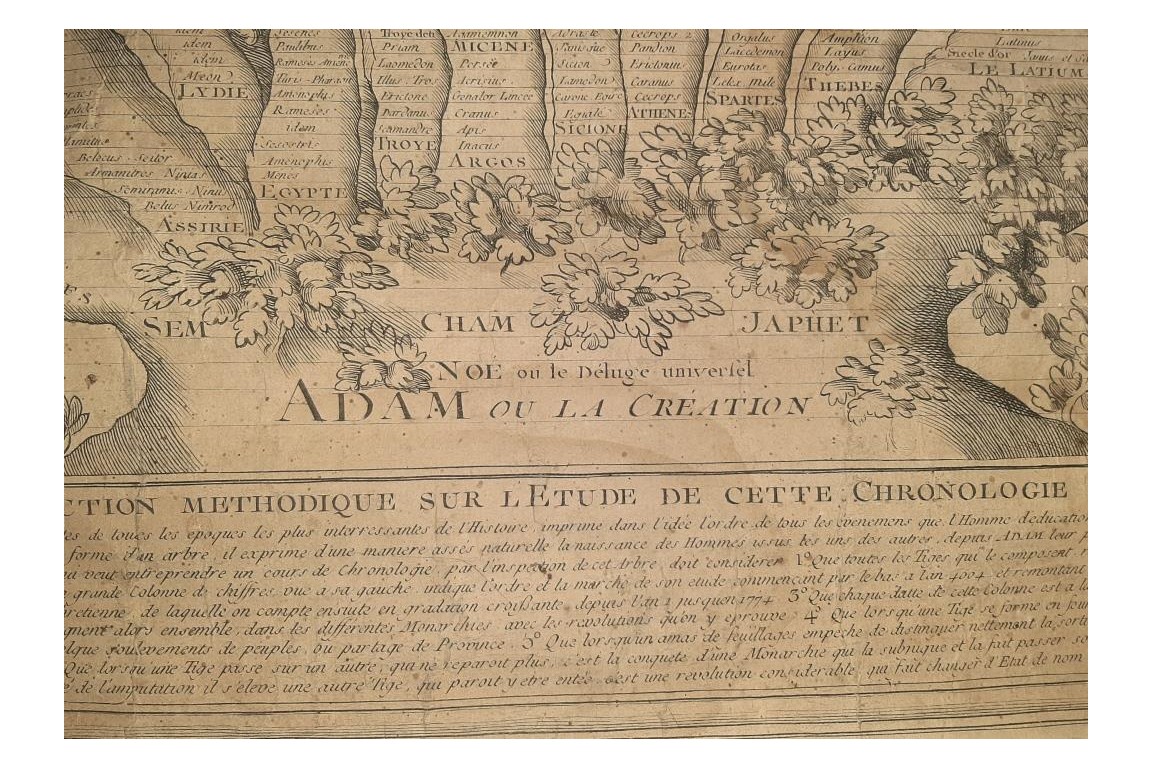 idem Sesenes Troye detr Agamemnon Adraste Cecrops 2 Orgalus Amphion Latinus
idem Psulibus Priam MICENE Pandion Lacedemon Layus Siecle d'or
Ramesès Laomedon Persée Sicion Erictonius Eurotas Poly. Camus LE LATIUM
Meon Pharaon Illus Tros Acrisius Lamedon Caranus THEBES
LYDIE Amenophis Erictone Lincée Cecrops SPARTES
Rameses Dardanus Cranus Egiale ATHENES
idem Scamandre Apis SICIONE
Sesostris TROYE Inacus
Belocus Amenophis ARGOS
Menes
Semiramis Ninus EGYPTE
Belus Nimrod
ASSIRIE
SEM CHAM JAPHET
NOE ou le Déluge universel
ADAM OU LA CRÉATION
CTION METHODIQUE SUR L'ETUDE DE CETTE CHRONOLOGIE
es de toues les epoques les plus interressantes de l'Histoire, imprime dans l'idée l'ordre de tous les évenemens que l'Homme d'education
forme d'un arbre, il exprime d'une maniere assés naturelle la naissance des Hommes issus les uns des autres, depuis ADAM leur p
veut entreprendre un cours de Chronologie par l'inspection de cet Arbre, doit considerer 1º Que toutes les Tiges qui le composent, r
grande Colonne de chiffres vue a sa gauche indique l'ordre et la marche de son etude commencant par le bas a l'an 4004 et remontant
retienne, de laquelle on compte ensuite en gradation croissante, depuis l'an 1 jusqu'en 1774 3º Que chaque datte de cette Colonne est a la
gnent alors ensemble, dans les différentes Monarchies avec les revolutions qu'on y eprouve 4º Que lorsqu'une Tige se forme en four
elque soulevements de peuples, ou partage de Province. 5º Que lorsqu'un amas de feuillages empêche de distinguer nettement la sorti
Que lorsqu'une Tige passe sur un autre, qui ne reparoit plus, c'est la conquete d'une Monarchie qui la subjugue et la fait passer so
de l'amputation il s'éleve une autre Tige, qui paroit y etre entée, c'est une revolution considerable, qui fait changer d'Etat de nom